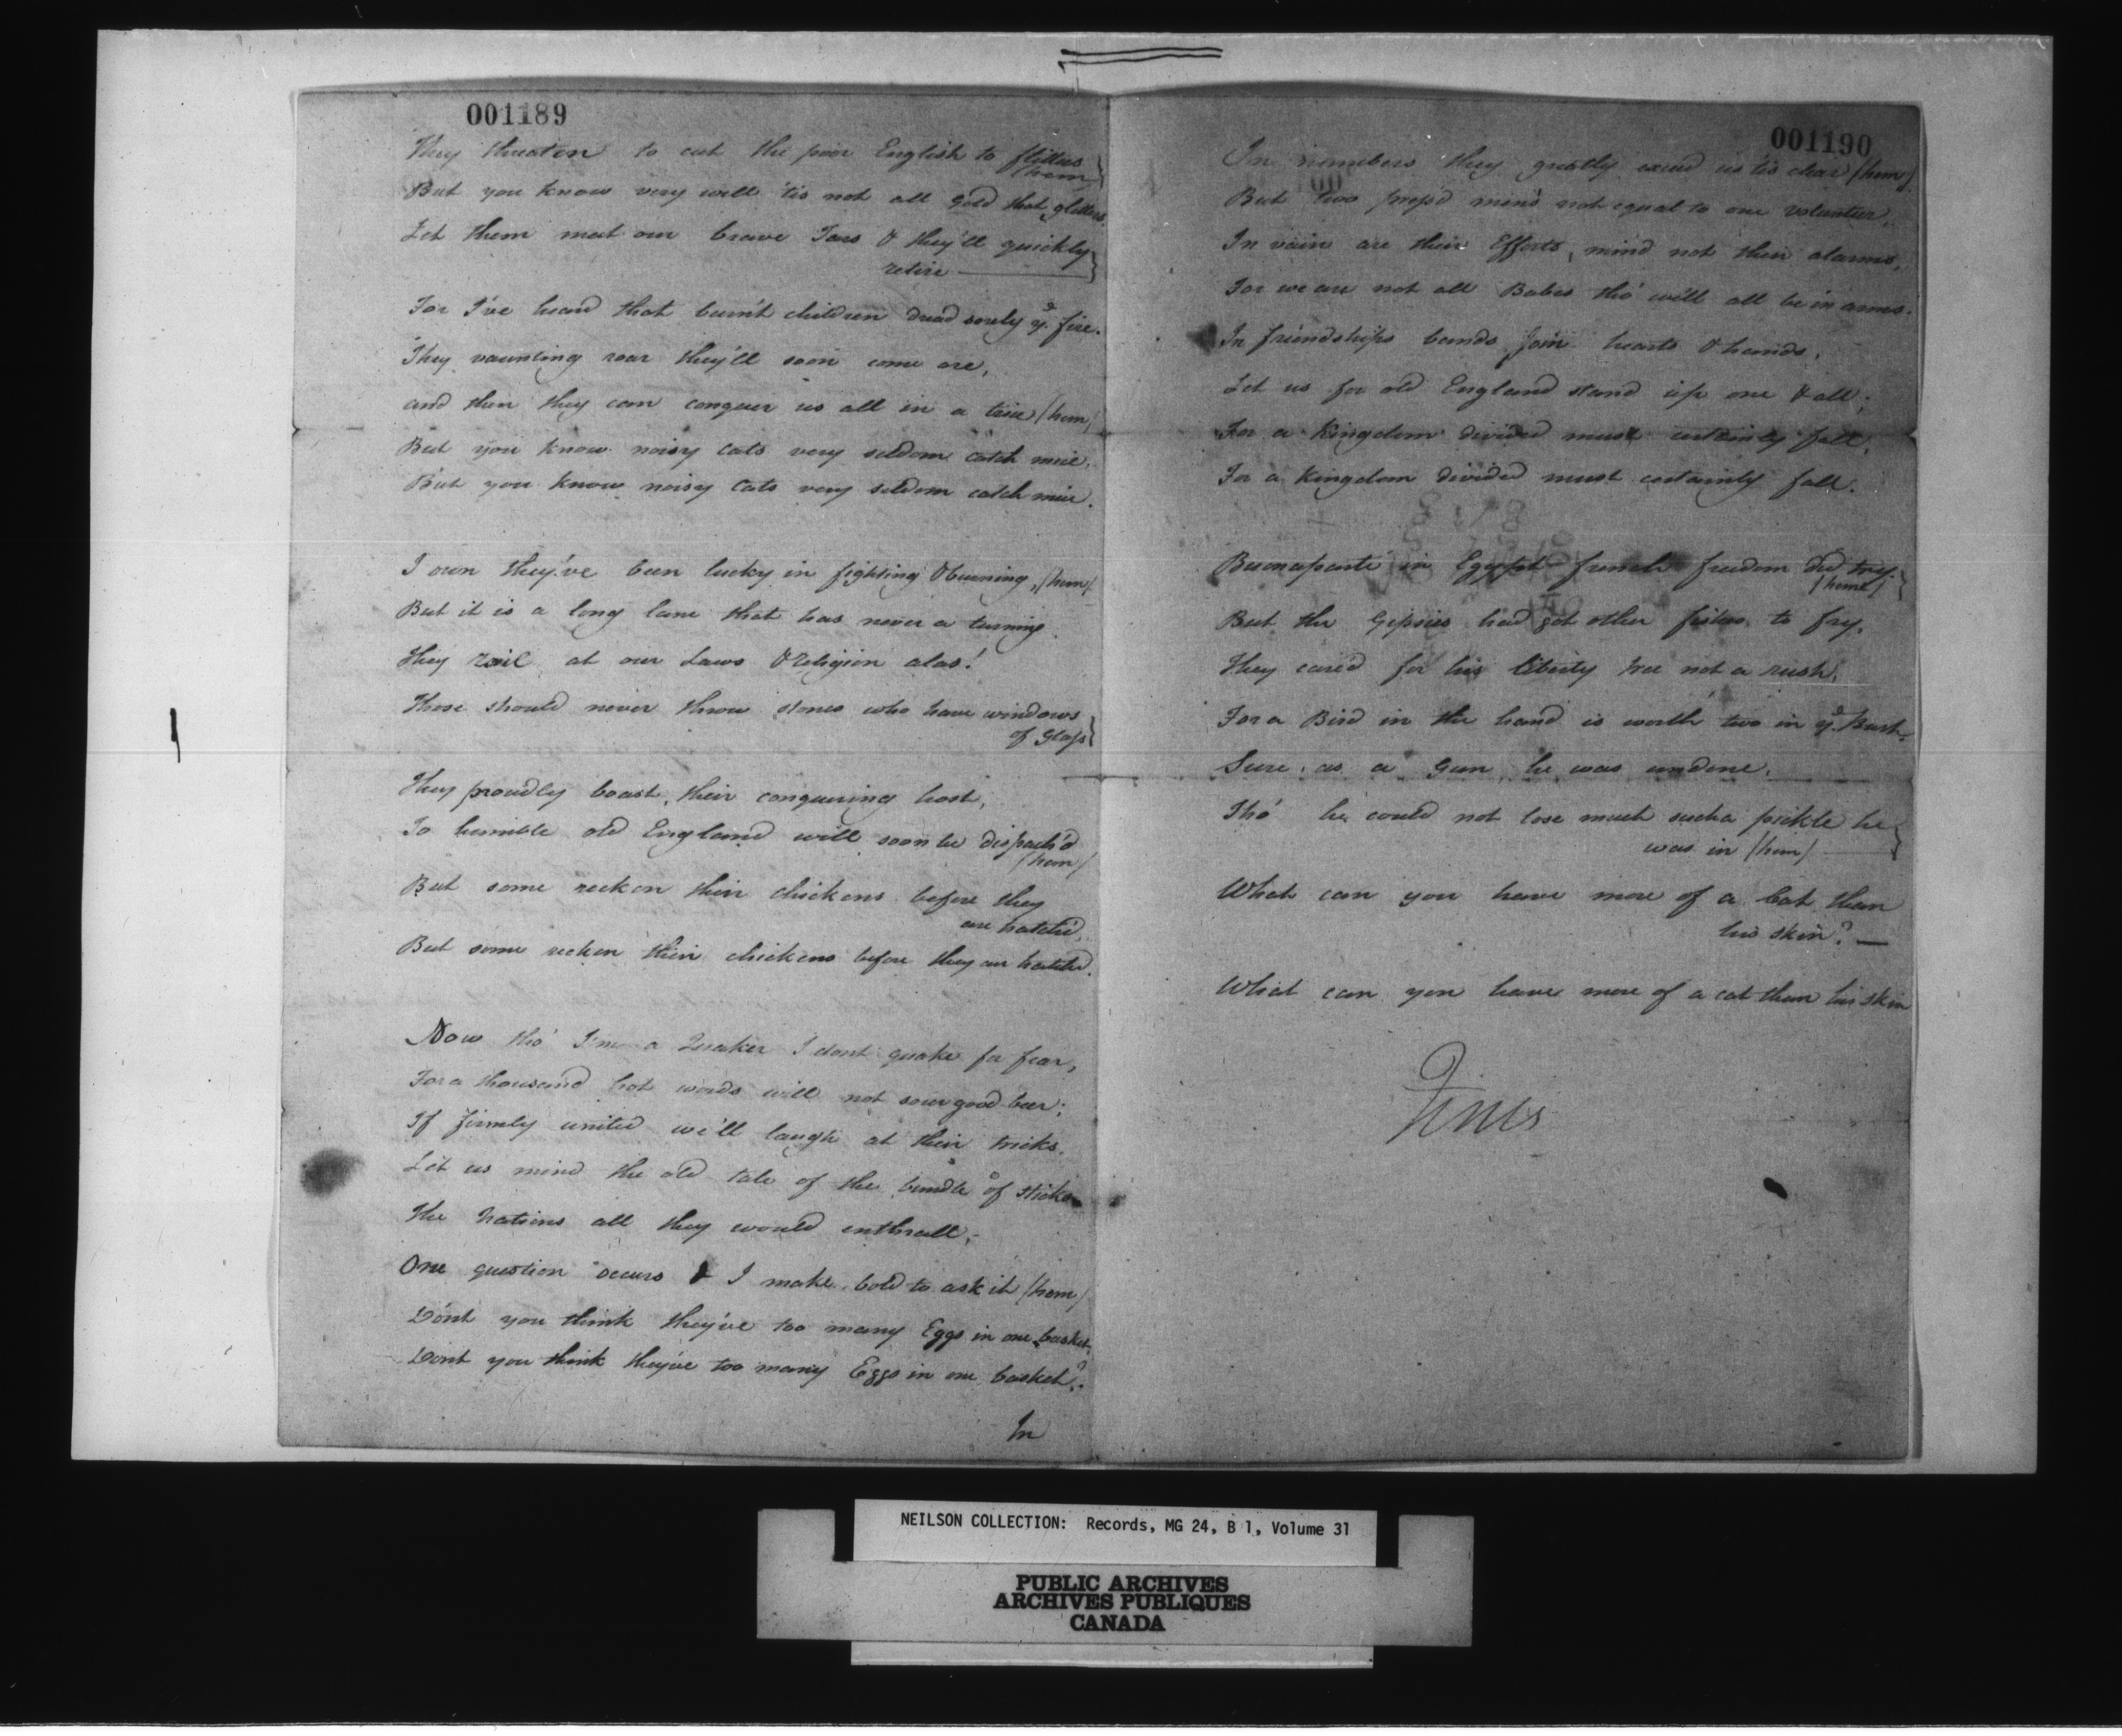 001189
They threaten to cut the poor English to flitters
(hem)
But you know very well 'tis not all Gold that glitters
Let them meet our brave Tars & they'll quickly
retire
For I've heard that burnt children dread sorely ye. fire.
They vaunting roar they'll soon come ore,
and then they can conquer us all in a trice (hem)
But you know noisy Cats very seldom catch mice.
But you know noisy Cats very seldom catch mice.
I own they've been lucky in fighting & burning, (hem)
But it is a long lane that has never a turning.
They rail at our Laws & Religion alas!
Those should never throw stones who have windows
of Glass
They proudly boast, their conquering host,
To humble old England will soon be dispatch'd
(hem)
But some reckon their chickens before they
are hatch'd,
But some reckon their chickens before they are hatch'd.
Now tho' I'm a Quaker I dont quake for fear,
For a thousand hot words will not sour good beer;
If firmly united we'll laugh at their tricks.
Let us mind the old tale of the bundle of sticks
The Nations all they would enthrall;
One question occurs & I make bold to ask it (hem)
Don't you think they've too many Eggs in one basket,
Dont you think they've too many Eggs in one basket?
In
001190
In numbers they greatly exceed us tis clear (hem)
But two press'd men's not equal to one volunteer,
In vain are their Efforts, mind not their alarms,
For we are not all Babes tho' we'll all be in arms.
In friendships bands join hearts & hands,
Let us for old England stand up one & all;
For a Kingdom divided must certainly fall,
For a Kingdom divided must certainly fall.
Buonaparte in Egypt french freedom did try.
(hem)
But the Gipsies had got other fishes to fry,
They cared for his liberty tree not a rush,
For a Bird in the hand is worth two in ye. Bush.
Sure as a Gun he was undone,
Tho' he could not lose much such a pickle he
was in (hem)
What can you have more of a Cat than
his skin?
What can you have more of a cat than his skin
Finis
NEILSON COLLECTION: Records, MG 24, B 1, Volume 31
PUBLIC ARCHIVES
ARCHIVES PUBLIQUES
CANADA